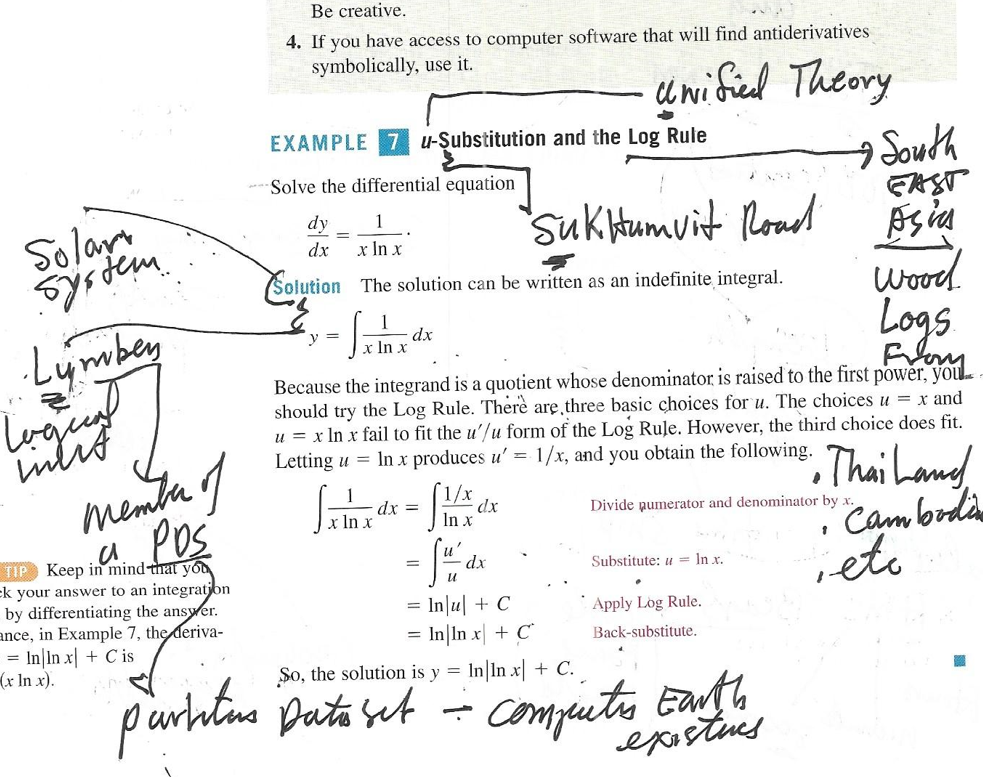 Be creative.
4. If you have access to computer software that will find antiderivatives
symbolically, use it.
Unified Theory
EXAMPLE 7 u-Substitution and the Log Rule
South
EAST
Asia
Wood
Logs
From
Solve the differential equation
dy/dx = 1/(x ln x).
SuKHumvit Road
Solar
System
Solution The solution can be written as an indefinite integral.
y = ∫ 1/(x ln x) dx
Lymber
Logical
Member of
a PDS
Because the integrand is a quotient whose denominator is raised to the first power, you
should try the Log Rule. There are three basic choices for u. The choices u = x and
u = x ln x fail to fit the u′/u form of the Log Rule. However, the third choice does fit.
Letting u = ln x produces u′ = 1/x, and you obtain the following.
. ThaiLand
, Cambodia
, etc
∫ 1/(x ln x) dx = ∫ (1/x)/(ln x) dx Divide numerator and denominator by x.
= ∫ u′/u dx Substitute: u = ln x.
= ln|u| + C Apply Log Rule.
= ln|ln x| + C Back-substitute.
So, the solution is y = ln|ln x| + C.
TIP Keep in mind that you
ck your answer to an integration
by differentiating the answer.
ance, in Example 7, the deriva-
= ln|ln x| + C is
(x ln x).
Data set - Computers Earth